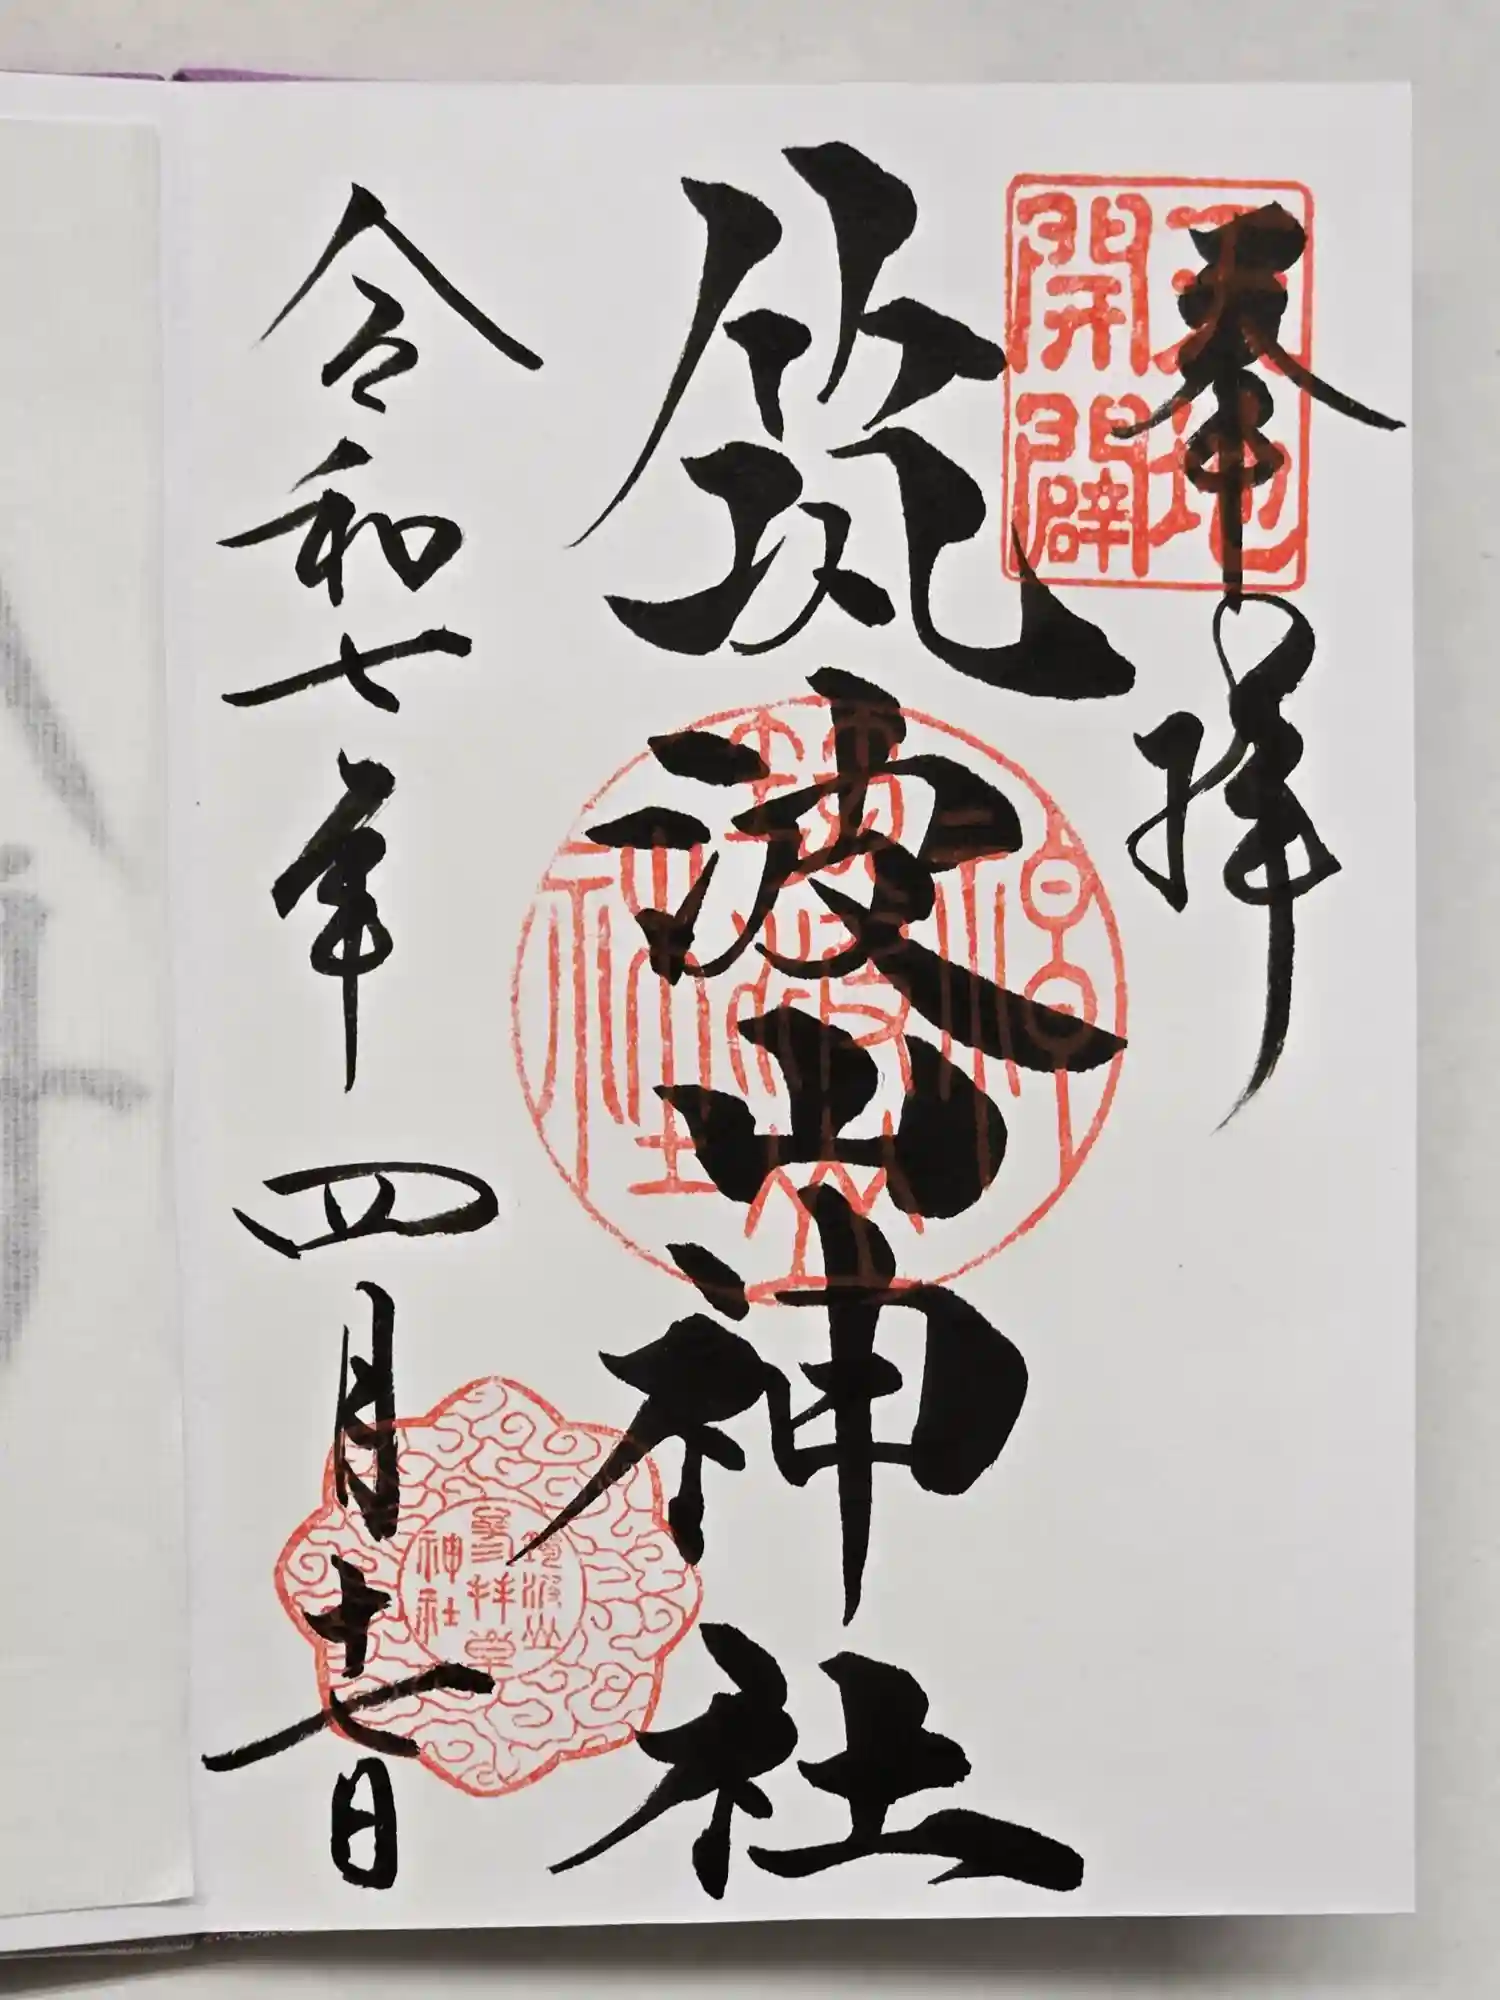 奉拝
天地
開闢
筑波山神社
筑波山
神社
筑波山
参拝章
神社
令和七年四月十七日